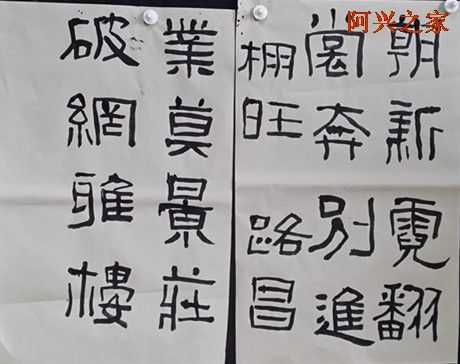 阿兴之家
朝新霓翻
裳奔別進
棚旺路昌
業莫景莊
破網雅樓